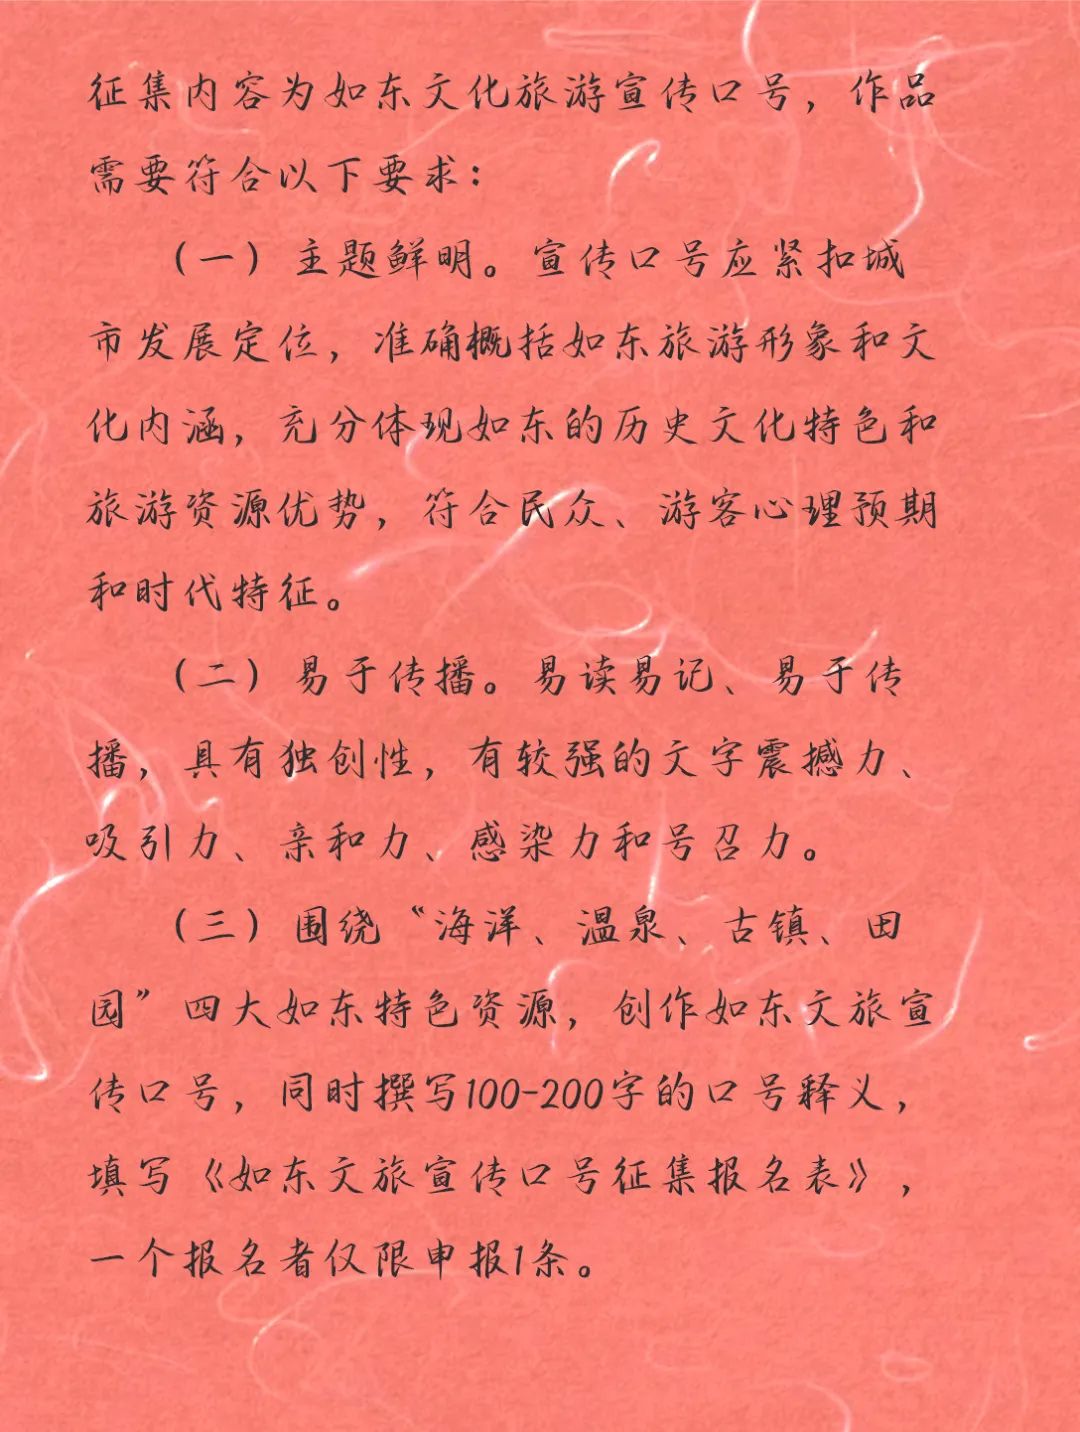 征集内容为如东文化旅游宣传口号，作品
需要符合以下要求：
（一）主题鲜明。宣传口号应紧扣城
市发展定位，准确概括如东旅游形象和文
化内涵，充分体现如东的历史文化特色和
旅游资源优势，符合民众、游客心理预期
和时代特征。
（二）易于传播。易读易记、易于传
播，具有独创性，有较强的文字震撼力、
吸引力、亲和力、感染力和号召力。
（三）围绕“海洋、温泉、古镇、田
园”四大如东特色资源，创作如东文旅宣
传口号，同时撰写100-200字的口号释义，
填写《如东文旅宣传口号征集报名表》，
一个报名者仅限申报1条。